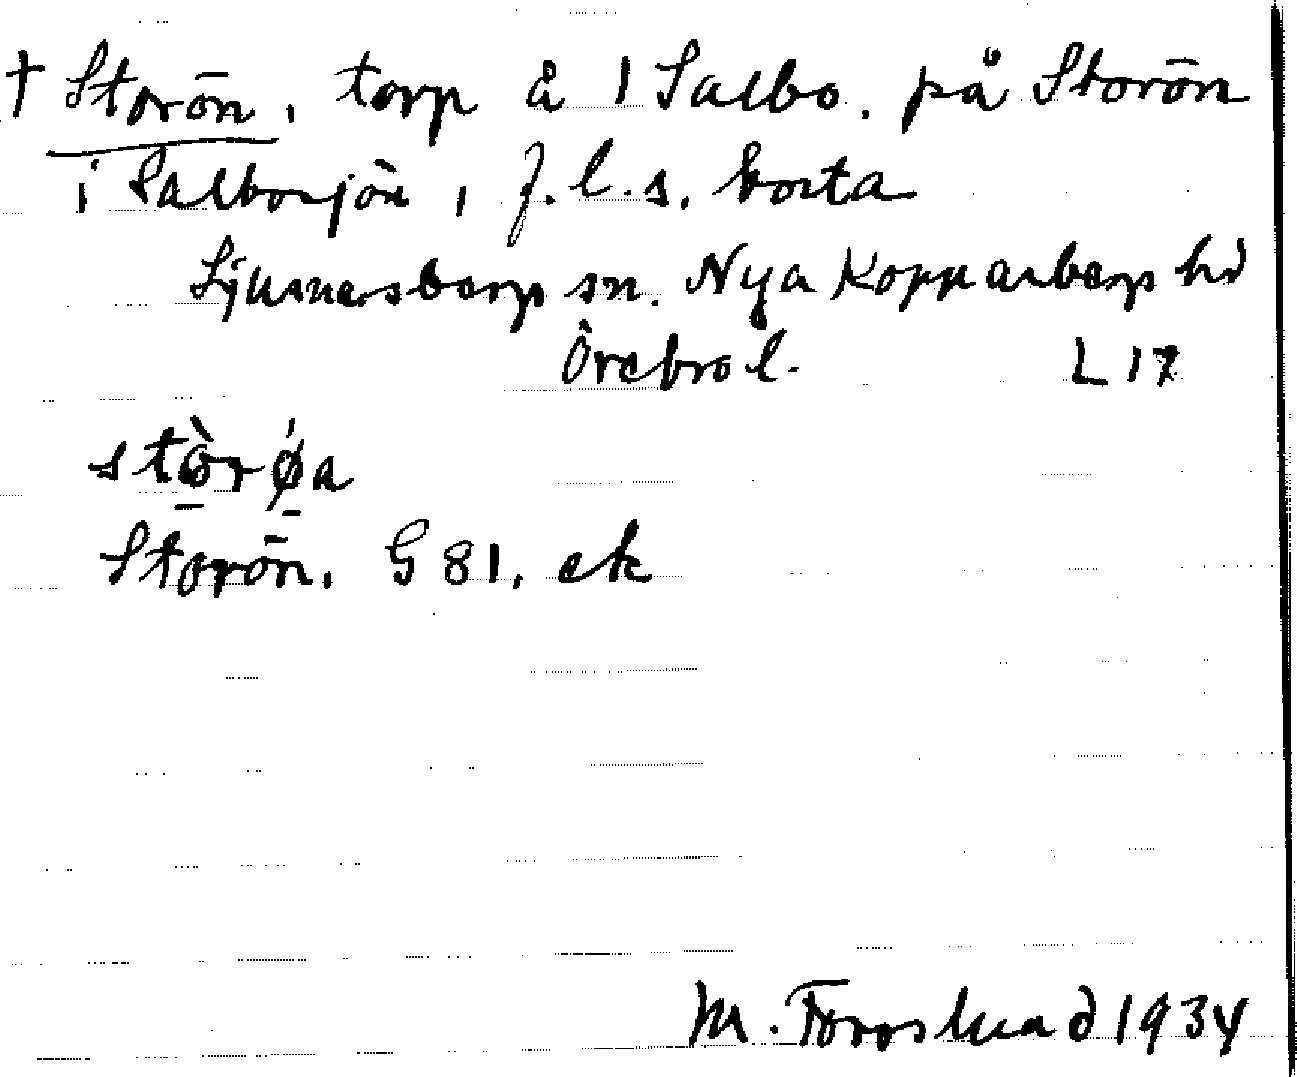 † Storön, torp å 1 Salbo, på Storön
i Salbosjön, f.l.s. borta
Ljusnarsbergs sn. Nya Kopparbergs hd
Örebro l. L 17
stòrǿa
Storön. G 81. ek
M. Forslund 1934